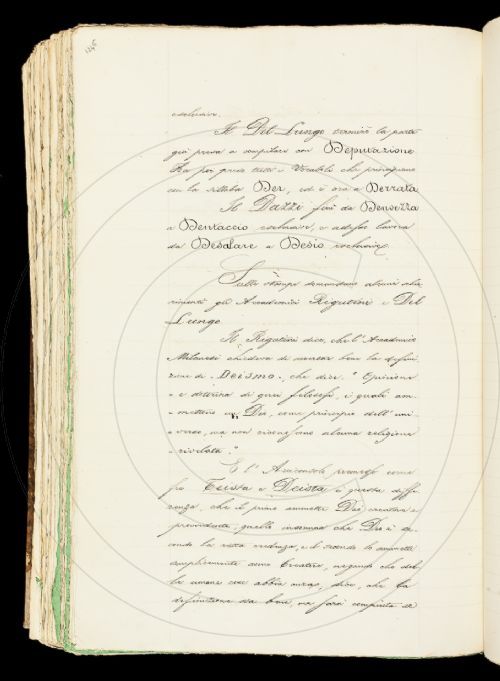 esclusive.
Il Del Lungo terminò la parte
già presa a compilare con Deputazione
Ha per questo tutti i Vocaboli che principiano
con la sillaba Der, ed è ora a Derrata
Il Dazzi finì da Densezza
a Dentaccio esclusive, e adesso lavora
da Desolare a Desio esclusive.
Sulle stampe domandano alcuni schia
rimenti gli Accademici Rigutini e Del
Lungo
Il Rigutini dice, che l'Accademico
Milanesi chiedeva di
zione di Deismo, che dice: " Opinione
e dottrina di quei filosofi, i quali am
mettono un Dio, come principio dell'uni
verso, ma non riconoscono alcuna religione
rivelata."
E l'Arciconsolo come
fra Teista e Deista è questa diffe
renza, che il primo ammette Dio creatore e
provvidente, quello insomma che Dio è se
condo la retta credenza, e il secondo lo ammette
semplicemente come Creatore, negando che del
le umane cose abbia cura, dice, che la
definizione sta bene, ma sarà compiuta se